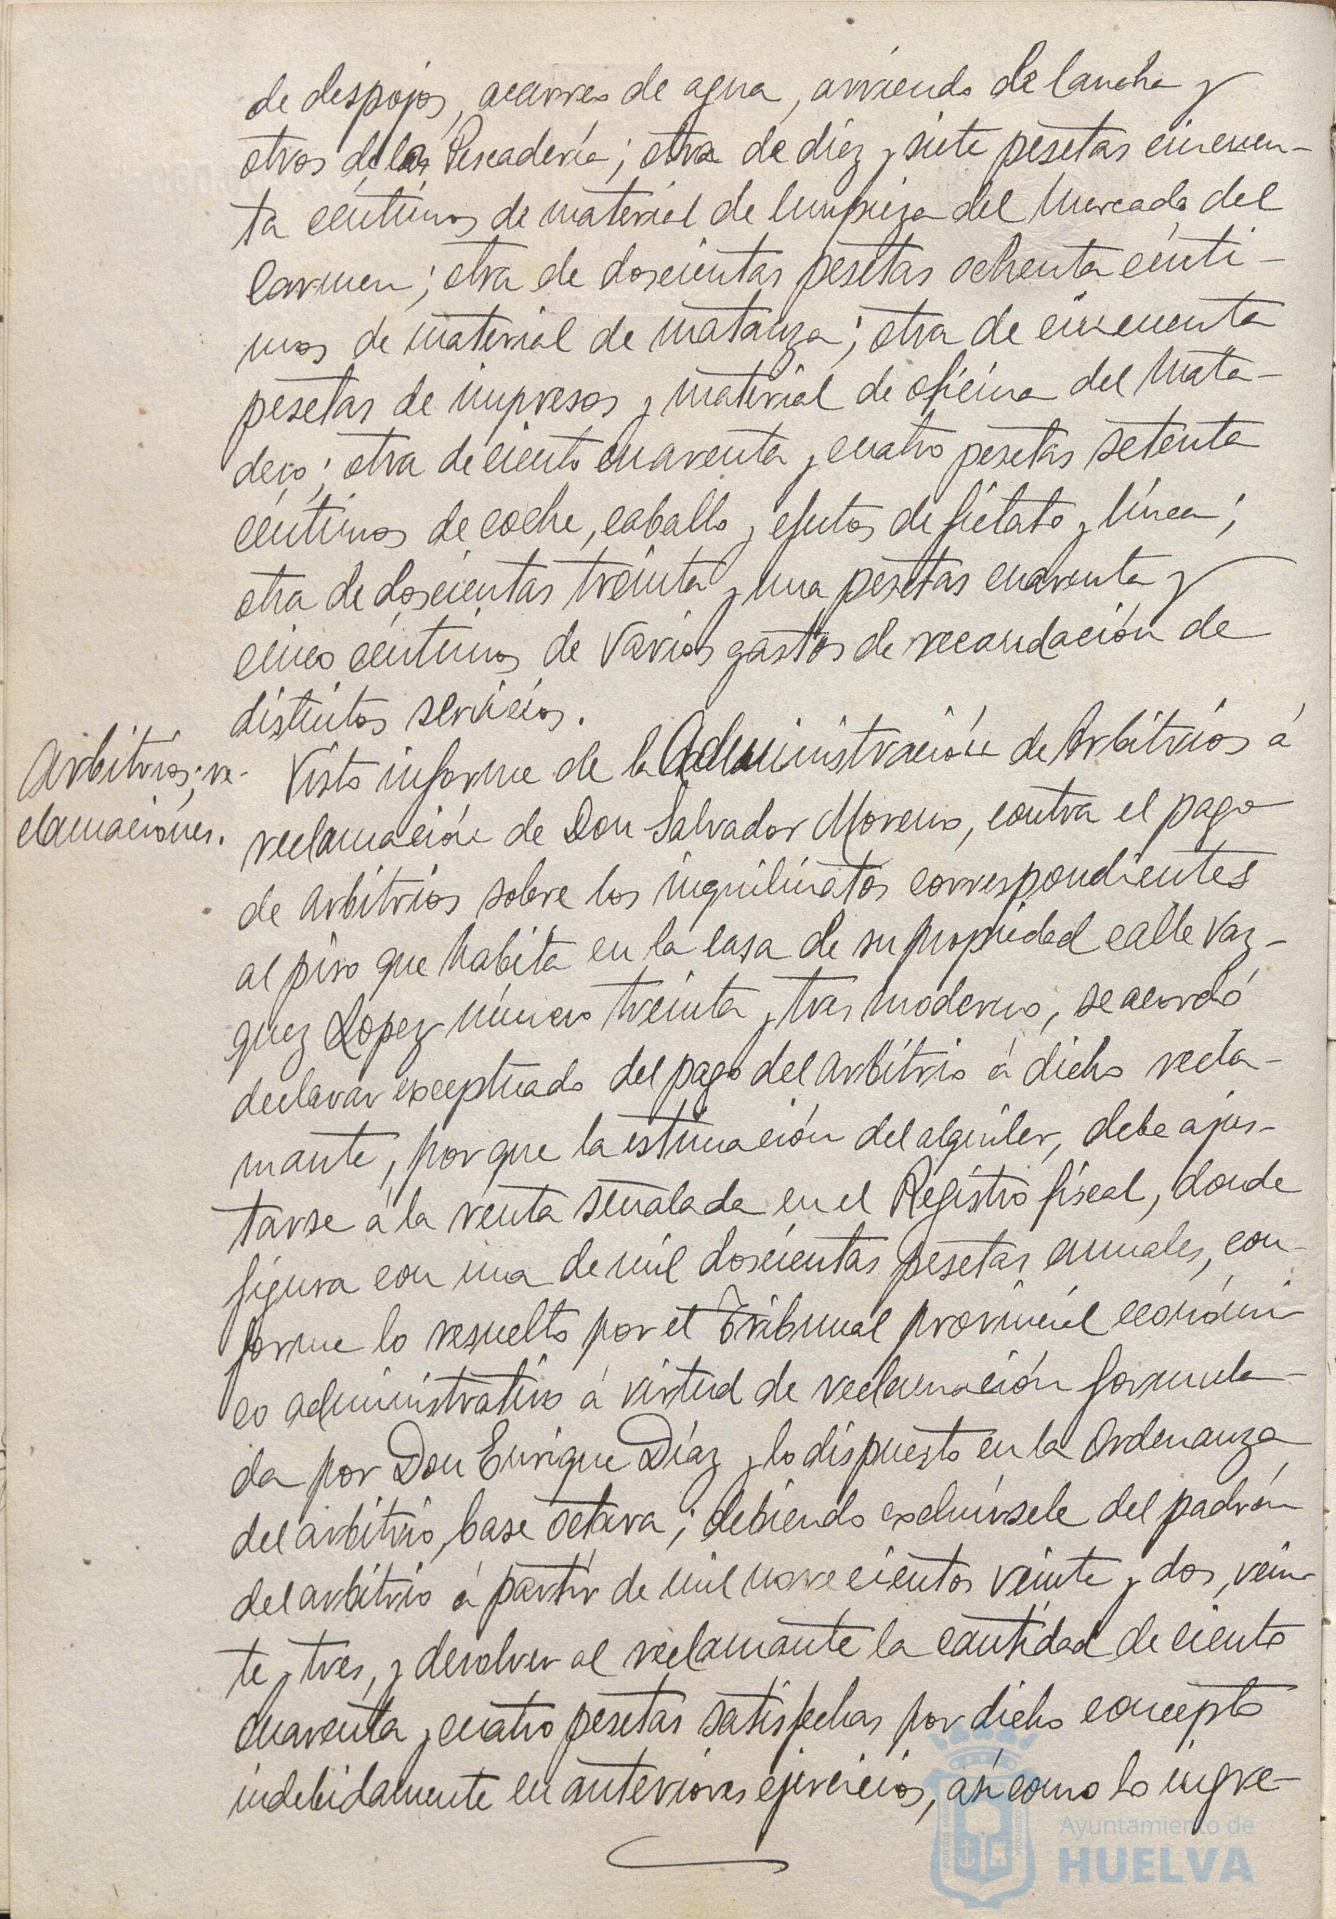 de despojos, acarreo de agua, arriendo de lancha y
otros de la Pescadería; otra de diez y siete pesetas cincuen-
ta céntimos de material de limpieza del Mercado del
Carmen; otra de doscientas pesetas ochenta cénti-
mos de material de matanza; otra de cincuenta
pesetas de impresos y material de oficina del Mata-
dero; otra de ciento cuarenta y cuatro pesetas setenta
céntimos de coche, caballo y efectos de fielato y línea;
otra de doscientas treinta y una pesetas cuarenta y
cinco céntimos de varios gastos de recaudación de
distintos servicios.
Arbitrios; re-
clamaciones.
Visto informe de la Administración de Arbitrios á
reclamación de Don Salvador Moreno, contra el pago
de arbitrios sobre los inquilinatos correspondientes
al piso que habita en la casa de su propiedad calle Vaz-
quez Lopez número treinta y tres moderno, se acordó
declarar exceptuado del pago del arbitrio á dicho recla-
mante, porque la estimación del alquiler, debe ajus-
tarse á la renta señalada en el Registro fiscal, donde
figura con una de mil doscientas pesetas anuales, con-
forme lo resuelto por el Tribunal provincial económi
co administrativo á virtud de reclamación formula-
da por Don Enrique Díaz y lo dispuesto en la Ordenanza
del arbitrio, base octava; debiendo excluírsele del padrón
del arbitrio á partir de mil novecientos veinte y dos, vein-
te y tres, y devolver al reclamante la cantidad de ciento
cuarenta y cuatro pesetas satisfechas por dicho concepto
indebidamente en anteriores ejercicios, así como lo ingre-
Ayuntamiento de
HUELVA